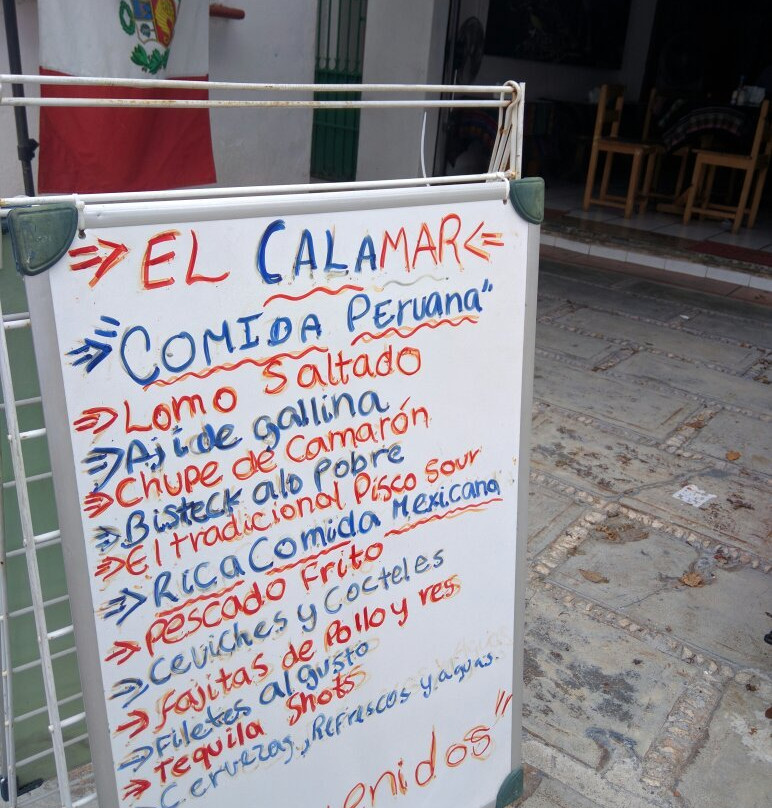 ⇒ EL CALAMAR ⇐
⇒ COMIDA Peruana"
⇒ Lomo Saltado
⇒ Aji de gallina
⇒ Chupe de Camarón
⇒ Bisteck alo Pobre
⇒ El tradicional Pisco Sour
⇒ Rica Comida Mexicana
⇒ Pescado Frito
⇒ Ceviches y Cocteles
⇒ Fajitas de Pollo y res
⇒ Filetes al gusto
⇒ Tequila Shots
⇒ Cervezas, Refrescos y aguas.
enidos"